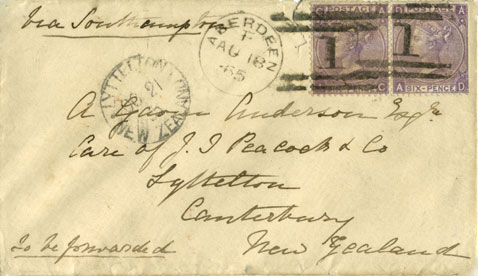 Via Southampton
ABERDEEN
1
AU 18
65
POSTAGE
POSTAGE
1
1
C
A SIX-PENCE D
LYTTELTON
NEW ZEA
21
A Gavin Anderson Esqre
Care of J. J Peacock & Co
Lyttelton
Canterbury
New Zealand
To be forwarded